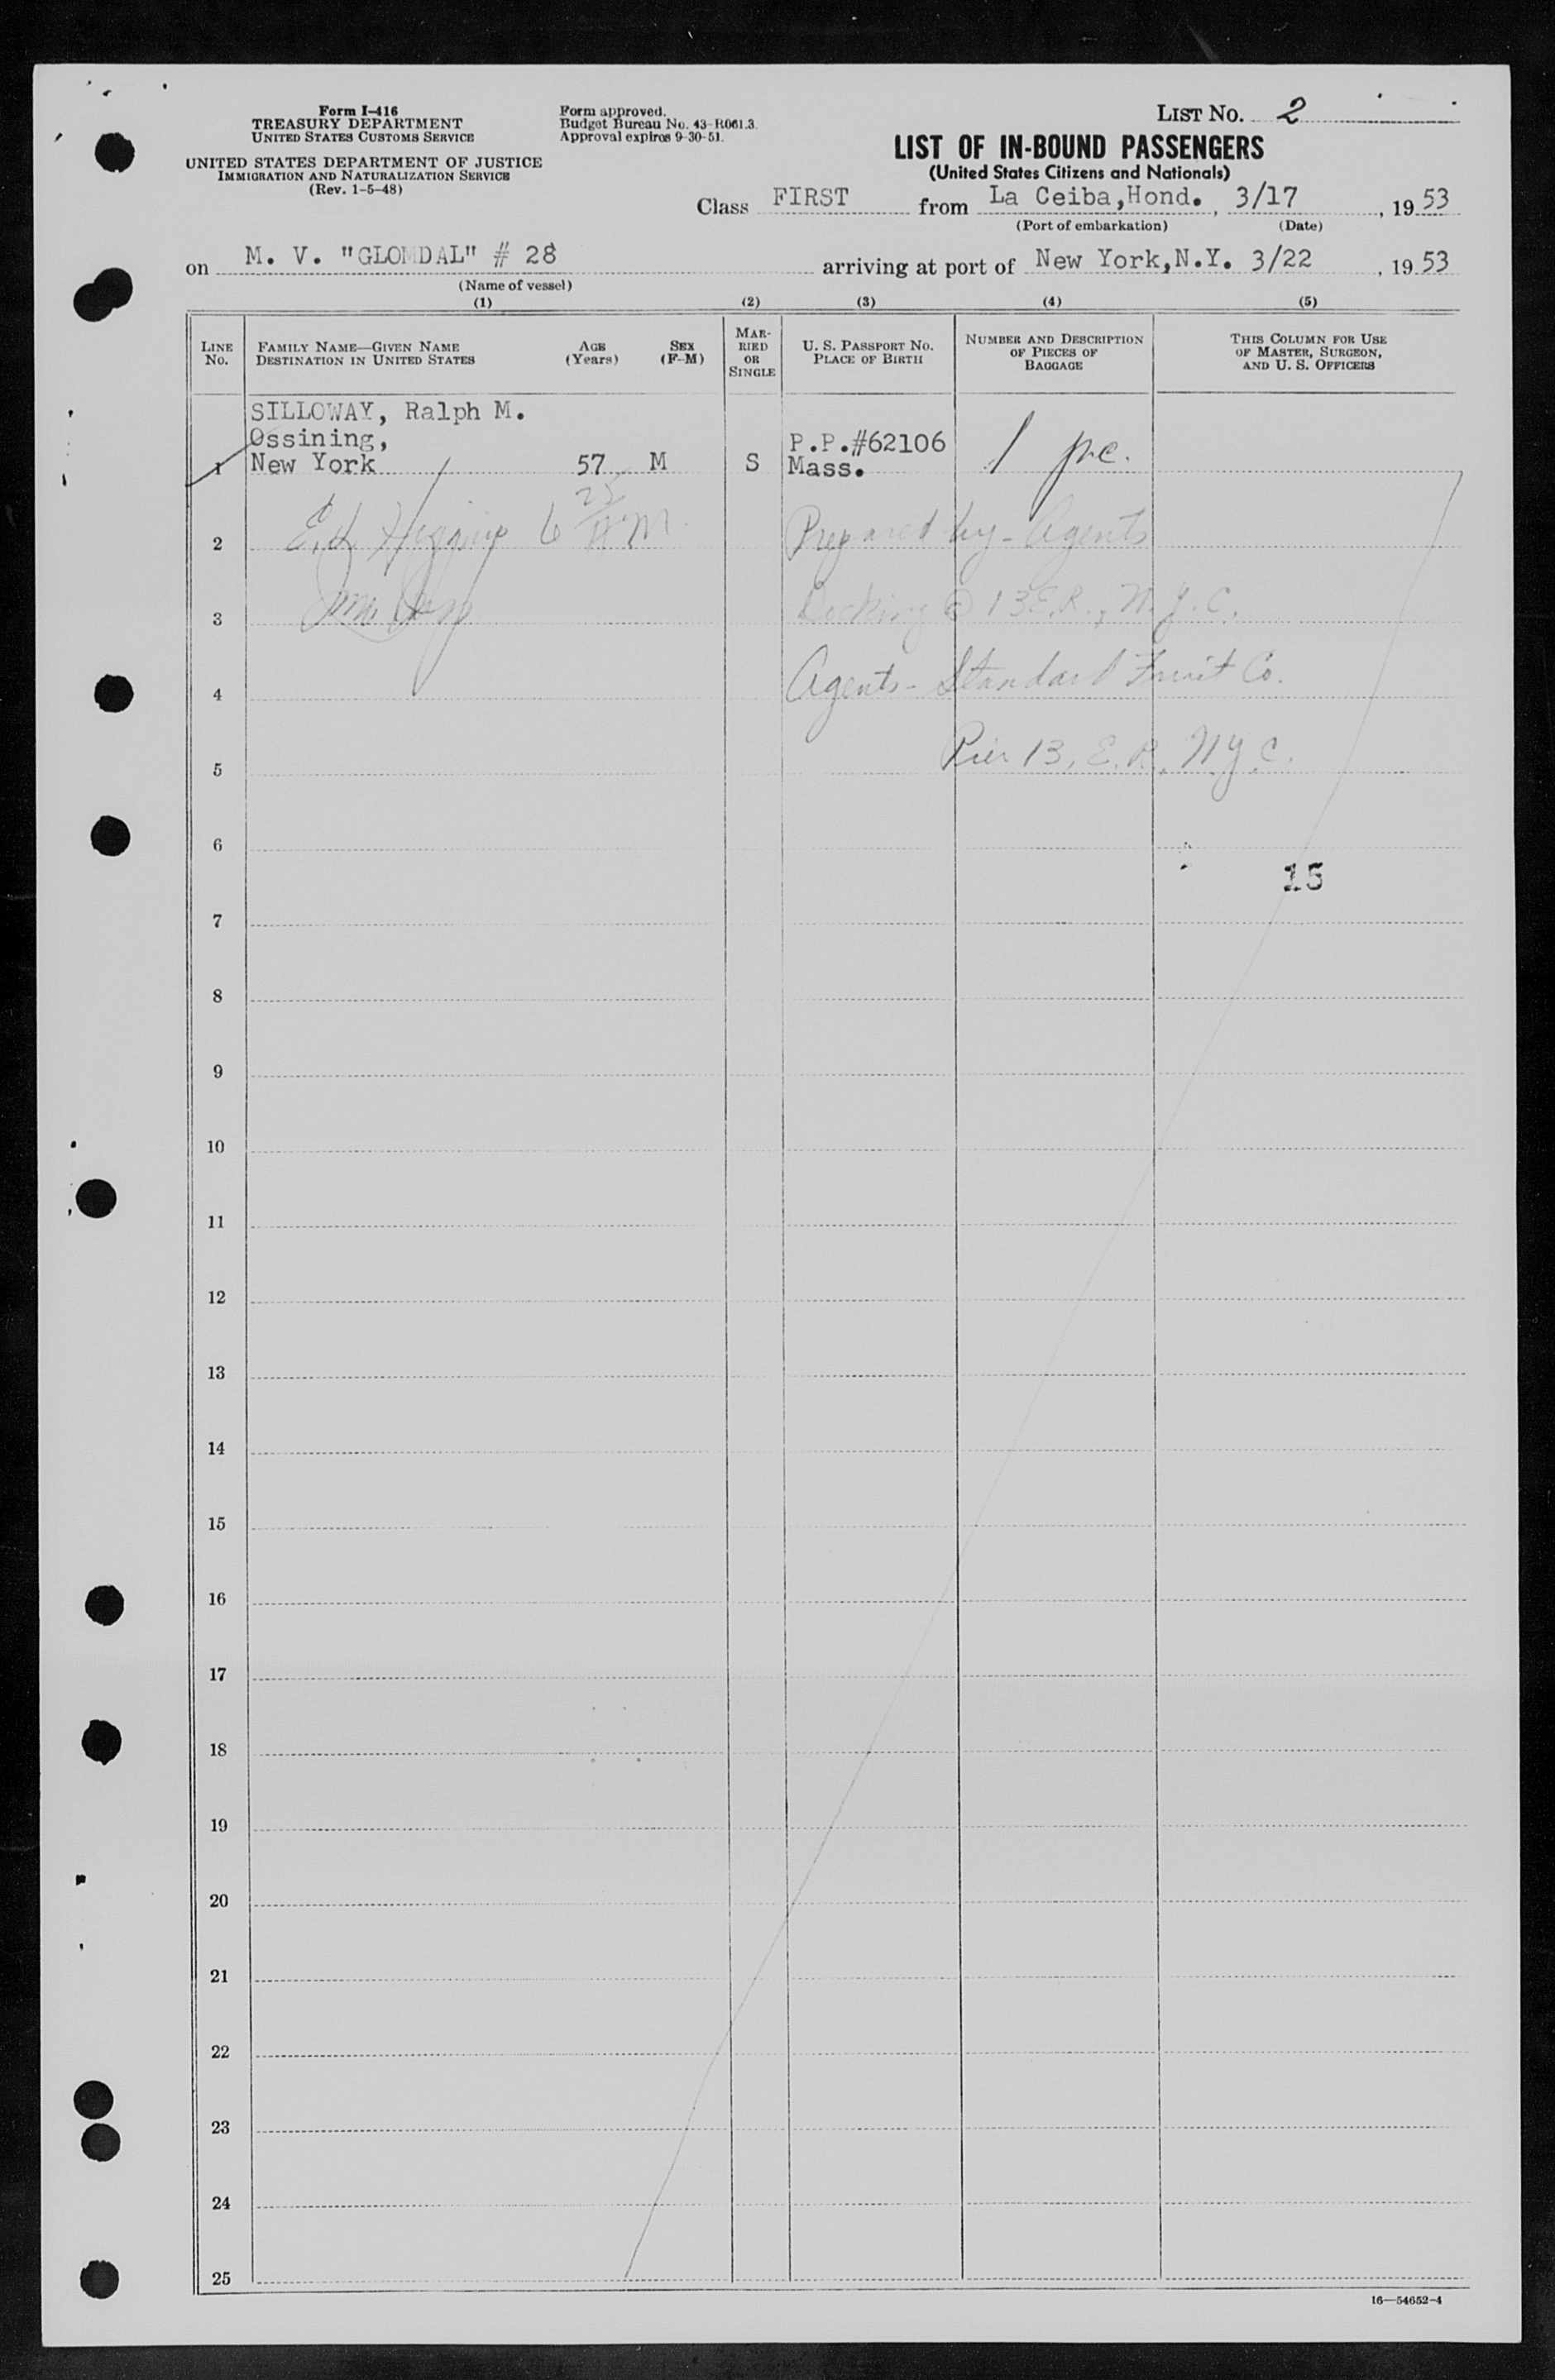 Form I-416
TREASURY DEPARTMENT
UNITED STATES CUSTOMS SERVICE
UNITED STATES DEPARTMENT OF JUSTICE
IMMIGRATION AND NATURALIZATION SERVICE
(Rev. 1-5-48)
Form approved.
Budget Bureau No. 43-R061.3.
Approval expires 9-30-51.
LIST NO. 2
LIST OF IN-BOUND PASSENGERS
(United States Citizens and Nationals)
Class FIRST from La Ceiba,Hond., 3/17, 1953
(Port of embarkation) (Date)
on M. V. "GLOMDAL" # 28 arriving at port of New York,N.Y. 3/22, 1953
(Name of vessel)
(1) (2) (3) (4) (5)
LINE NO.
FAMILY NAME—GIVEN NAME
DESTINATION IN UNITED STATES
AGE (Years)
SEX (F-M)
MARRIED OR SINGLE
U. S. PASSPORT NO.
PLACE OF BIRTH
NUMBER AND DESCRIPTION
OF PIECES OF
BAGGAGE
THIS COLUMN FOR USE
OF MASTER, SURGEON,
AND U. S. OFFICERS
SILLOWAY, Ralph M.
Ossining, P.P.#62106
1 New York 57 M S Mass. 1 pc.
2 Prepared by - Agents
3 Docking @ 13 E.R., N.Y.C.
4 Agents - Standard Fruit Co.
5 Pier 13, E.R. N.Y.C.
6
15
7
8
9
10
11
12
13
14
15
16
17
18
19
20
21
22
23
24
25
16—54652-4